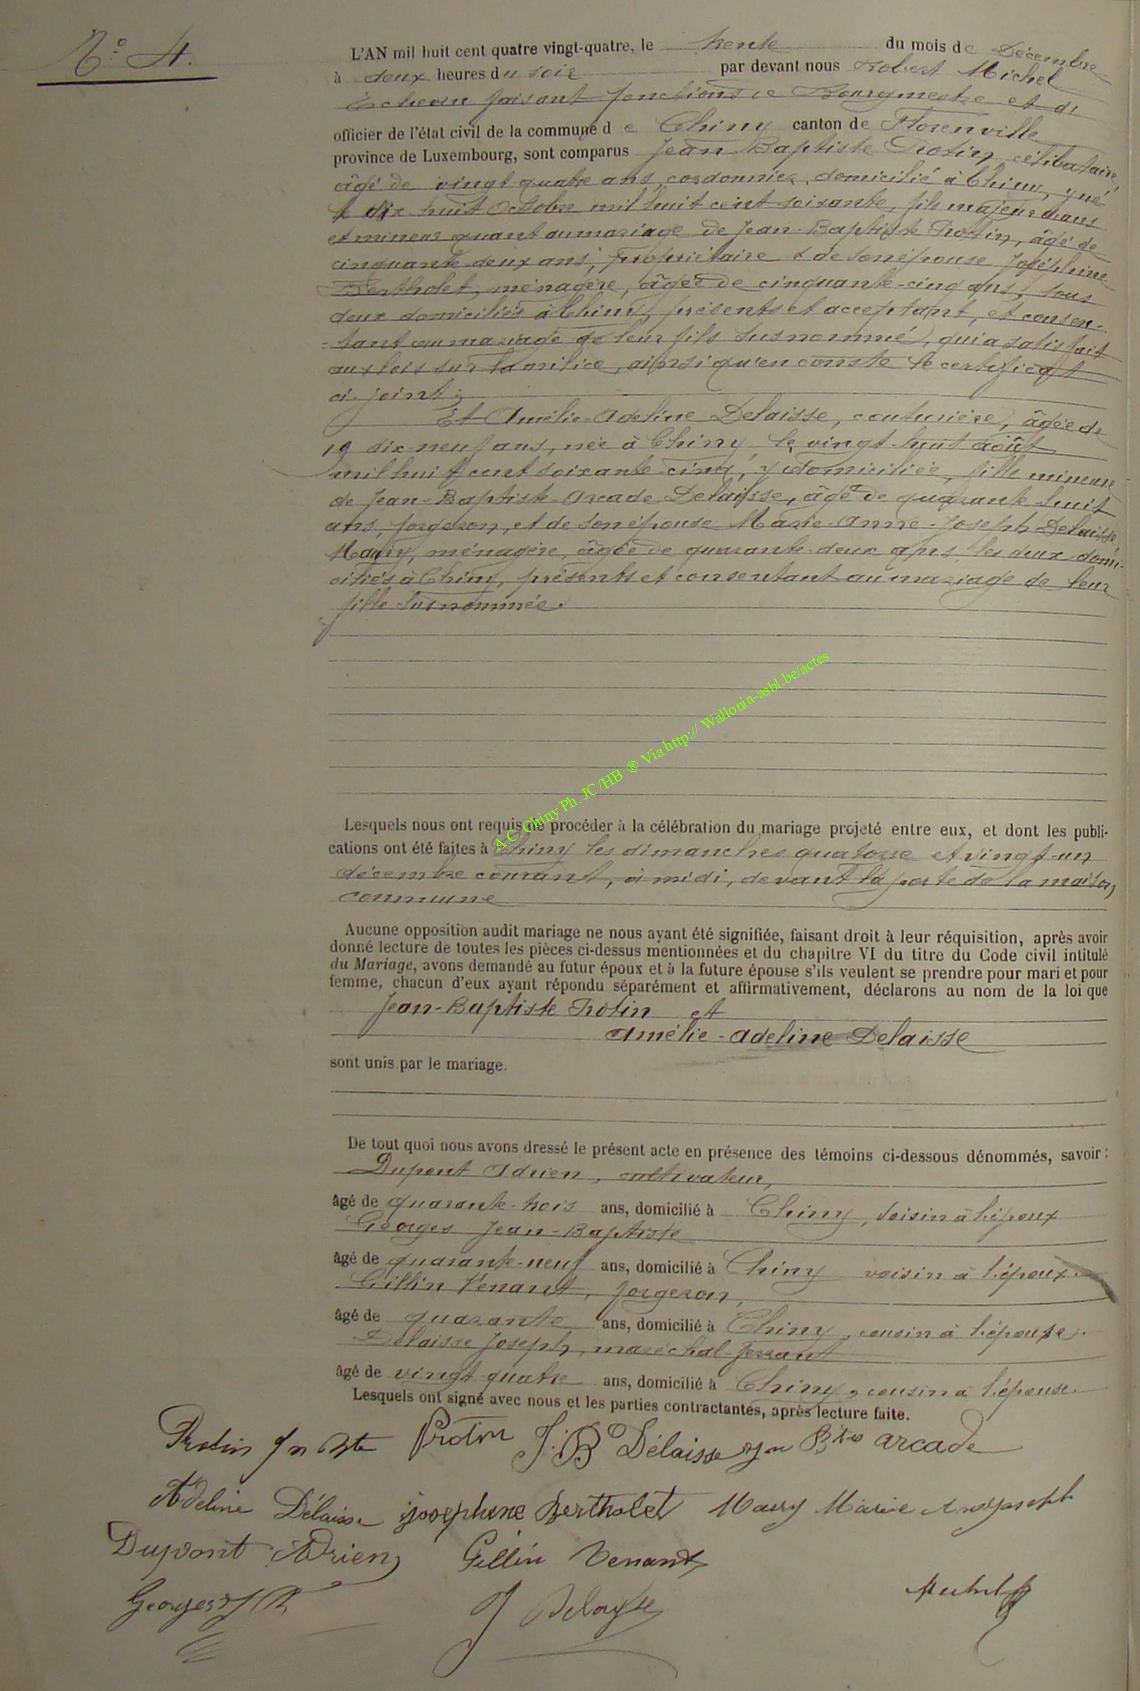 N° 4.
L'AN mil huit cent quatre vingt-quatre, le trente du mois de Décembre
à deux heures du soir par devant nous Robert Michel
Echevin faisant fonctions de Bourgmestre et de
officier de l'état civil de la commune de Chiny canton de Florenville
province de Luxembourg, sont comparus Jean Baptiste Protin, célibataire,
âgé de vingt quatre ans, cordonnier, domicilié à Chiny, y né
le dix huit Octobre mil huit cent soixante, fils majeur d'ans
et mineur quant au mariage de Jean-Baptiste Protin, âgé de
cinquante deux ans, propriétaire & de son épouse Joséphine
Bertholet, ménagère, âgée de cinquante-cinq ans, tous
deux domiciliés à Chiny, présents et acceptant, et consen-
-tant au mariage de leur fils susnommé, qui a satisfait
aux lois sur la milice, ainsi qu'en conste le certificat
ci-joint;
Et Amélie-Adeline Delaisse, couturière, âgée de
19 dix-neuf ans, née à Chiny le vingt-huit août
mil huit cent soixante cinq, y domiciliée, fille mineure
de Jean-Baptiste-Arcade Delaisse, âgé de quarante huit
ans, forgeron, et de son épouse Marie-Anne-Joseph Delaisse
Maury, ménagère, âgée de quarante-deux ans les deux domi-
ciliés à Chiny, présents et consentant au mariage de leur
fille susnommée.
A.C. Chiny Ph. JC/HB ® Via http:// Wallonia-asbl.be/actes
Lesquels nous ont requis de procéder à la célébration du mariage projeté entre eux, et dont les publi-
cations ont été faites à Chiny les dimanches quatorze et vingt-un
décembre courant, à midi, devant la porte de la maison
commune
Aucune opposition audit mariage ne nous ayant été signifiée, faisant droit à leur réquisition, après avoir
donné lecture de toutes les pièces ci-dessus mentionnées et du chapitre VI du titre du Code civil intitulé
du Mariage, avons demandé au futur époux et à la future épouse s'ils veulent se prendre pour mari et pour
femme, chacun d'eux ayant répondu séparément et affirmativement, déclarons au nom de la loi que
Jean-Baptiste Protin et
Amélie-Adeline Delaisse
sont unis par le mariage.
De tout quoi nous avons dressé le présent acte en présence des témoins ci-dessous dénommés, savoir:
Dupont Adrien, cultivateur,
âgé de quarante-trois ans, domicilié à Chiny, voisin à l'époux
Georges Jean-Baptiste
âgé de quarante-neuf ans, domicilié à Chiny voisin à l'époux
Gillin Venant, forgeron,
âgé de quarante ans, domicilié à Chiny, cousin à l'épouse.
Delaisse Joseph, maréchal-ferrant
âgé de vingt quatre ans, domicilié à Chiny, cousin à l'épouse.
Lesquels ont signé avec nous et les parties contractantes, après lecture faite.
Protin Jn Bte Protin J: B Délaisse Jn Bte arcade
Adeline Délaisse josephine Bertholet Maury Marie
Dupont Adrien Gillin Venant
Georges J B J Delaysse Michel R